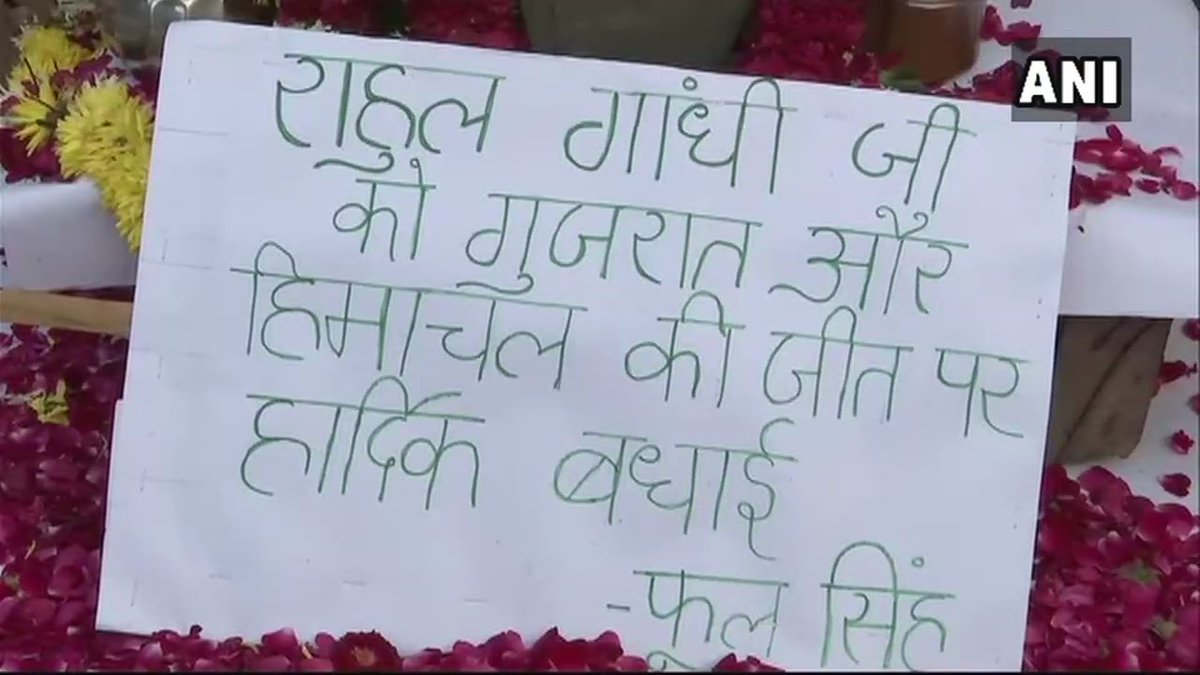 ANI
राहुल गांधी जी
को गुजरात और
हिमाचल की जीत पर
हार्दिक बधाई
-फूल सिंह